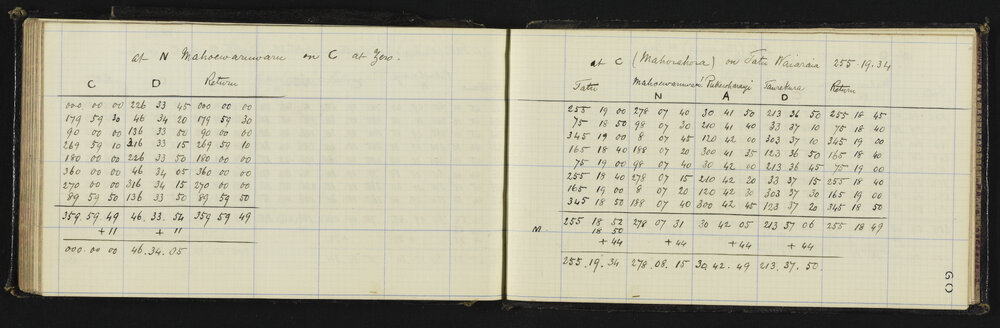 at N Mahoewaruwaru on C at Zero.
C D Return
000 00 00 226 33 45 000 00 00
179 59 30 46 34 20 179 59 30
90 00 00 136 33 50 90 00 00
269 59 10 316 33 15 269 59 10
180 00 00 226 33 50 180 00 00
360 00 00 46 34 05 360 00 00
270 00 00 316 34 15 270 00 00
89 59 50 136 33 50 89 59 50
359 59 49 46.33.54 359 59 49
+11 +11
000.00.00 46.34.05
at C (Mahorahora) on Tatu Waiaraia 255.19.34
Tatu Mahoewaruwaru Return
N A D
255 19 00 278 07 40 30 41 50 213 36 50 255 18 45
75 18 50 98 07 30 210 41 40 33 37 10 75 18 40
345 19 00 8 07 45 120 42 00 303 37 10 345 19 00
165 18 40 188 07 20 300 41 35 123 36 50 165 18 40
75 19 00 98 07 40 30 42 00 213 36 45 75 19 00
255 18 40 278 07 15 210 42 20 33 37 15 255 18 40
165 19 00 8 07 20 120 42 30 303 37 30 165 19 00
345 18 50 188 07 40 300 42 45 123 37 20 345 18 50
255 18 52 278 07 31 30 42 05 213 37 06 255 18 49
M. 18 50
+44 +44 +44 +44
255.19.34 278.08.15 30.42.49 213.37.50.
60